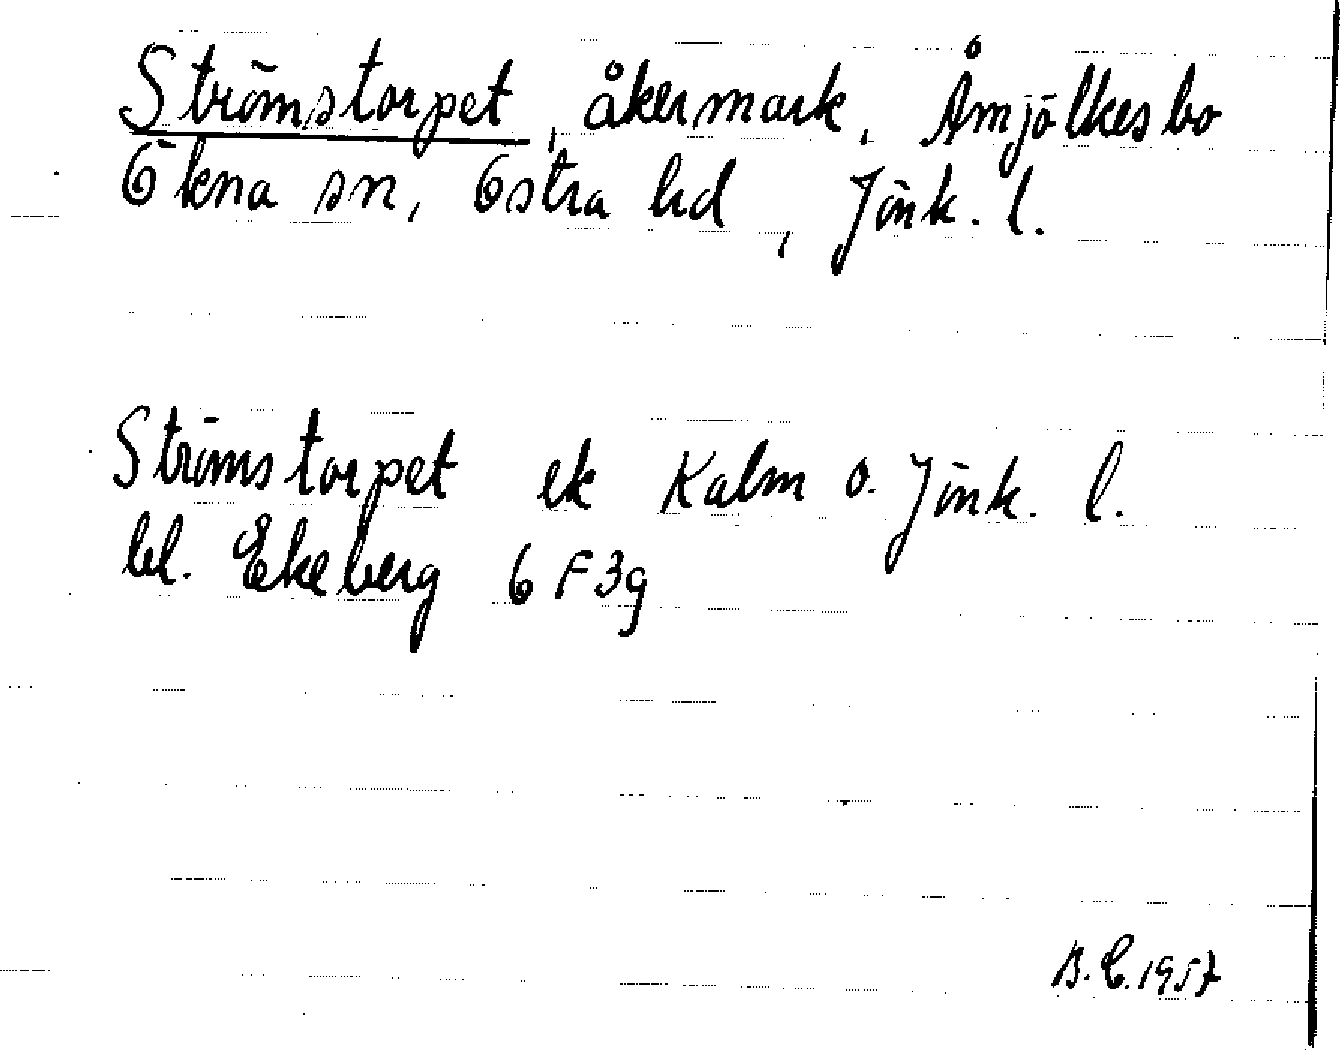 Strömstorpet, åkermark, Åmjölkesbo
Ökna sn, Östra hd, Jönk. l.
Strömstorpet ek Kalm o. Jönk. l.
bl. Ekeberg 6 F 3g
B.E. 1957